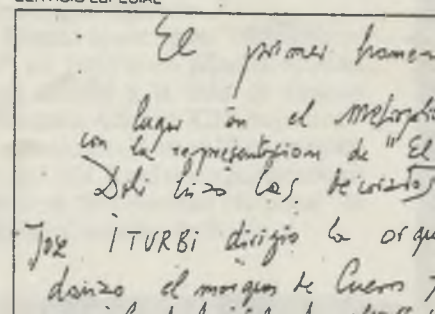 SERVICIO ESPECIAL
El primer homen
lugar en el Metropolit
con la representacion de "El
Dali hizo los decorados
Jose ITURBI dirigio la orqu
danzo el marques de Cuevas y